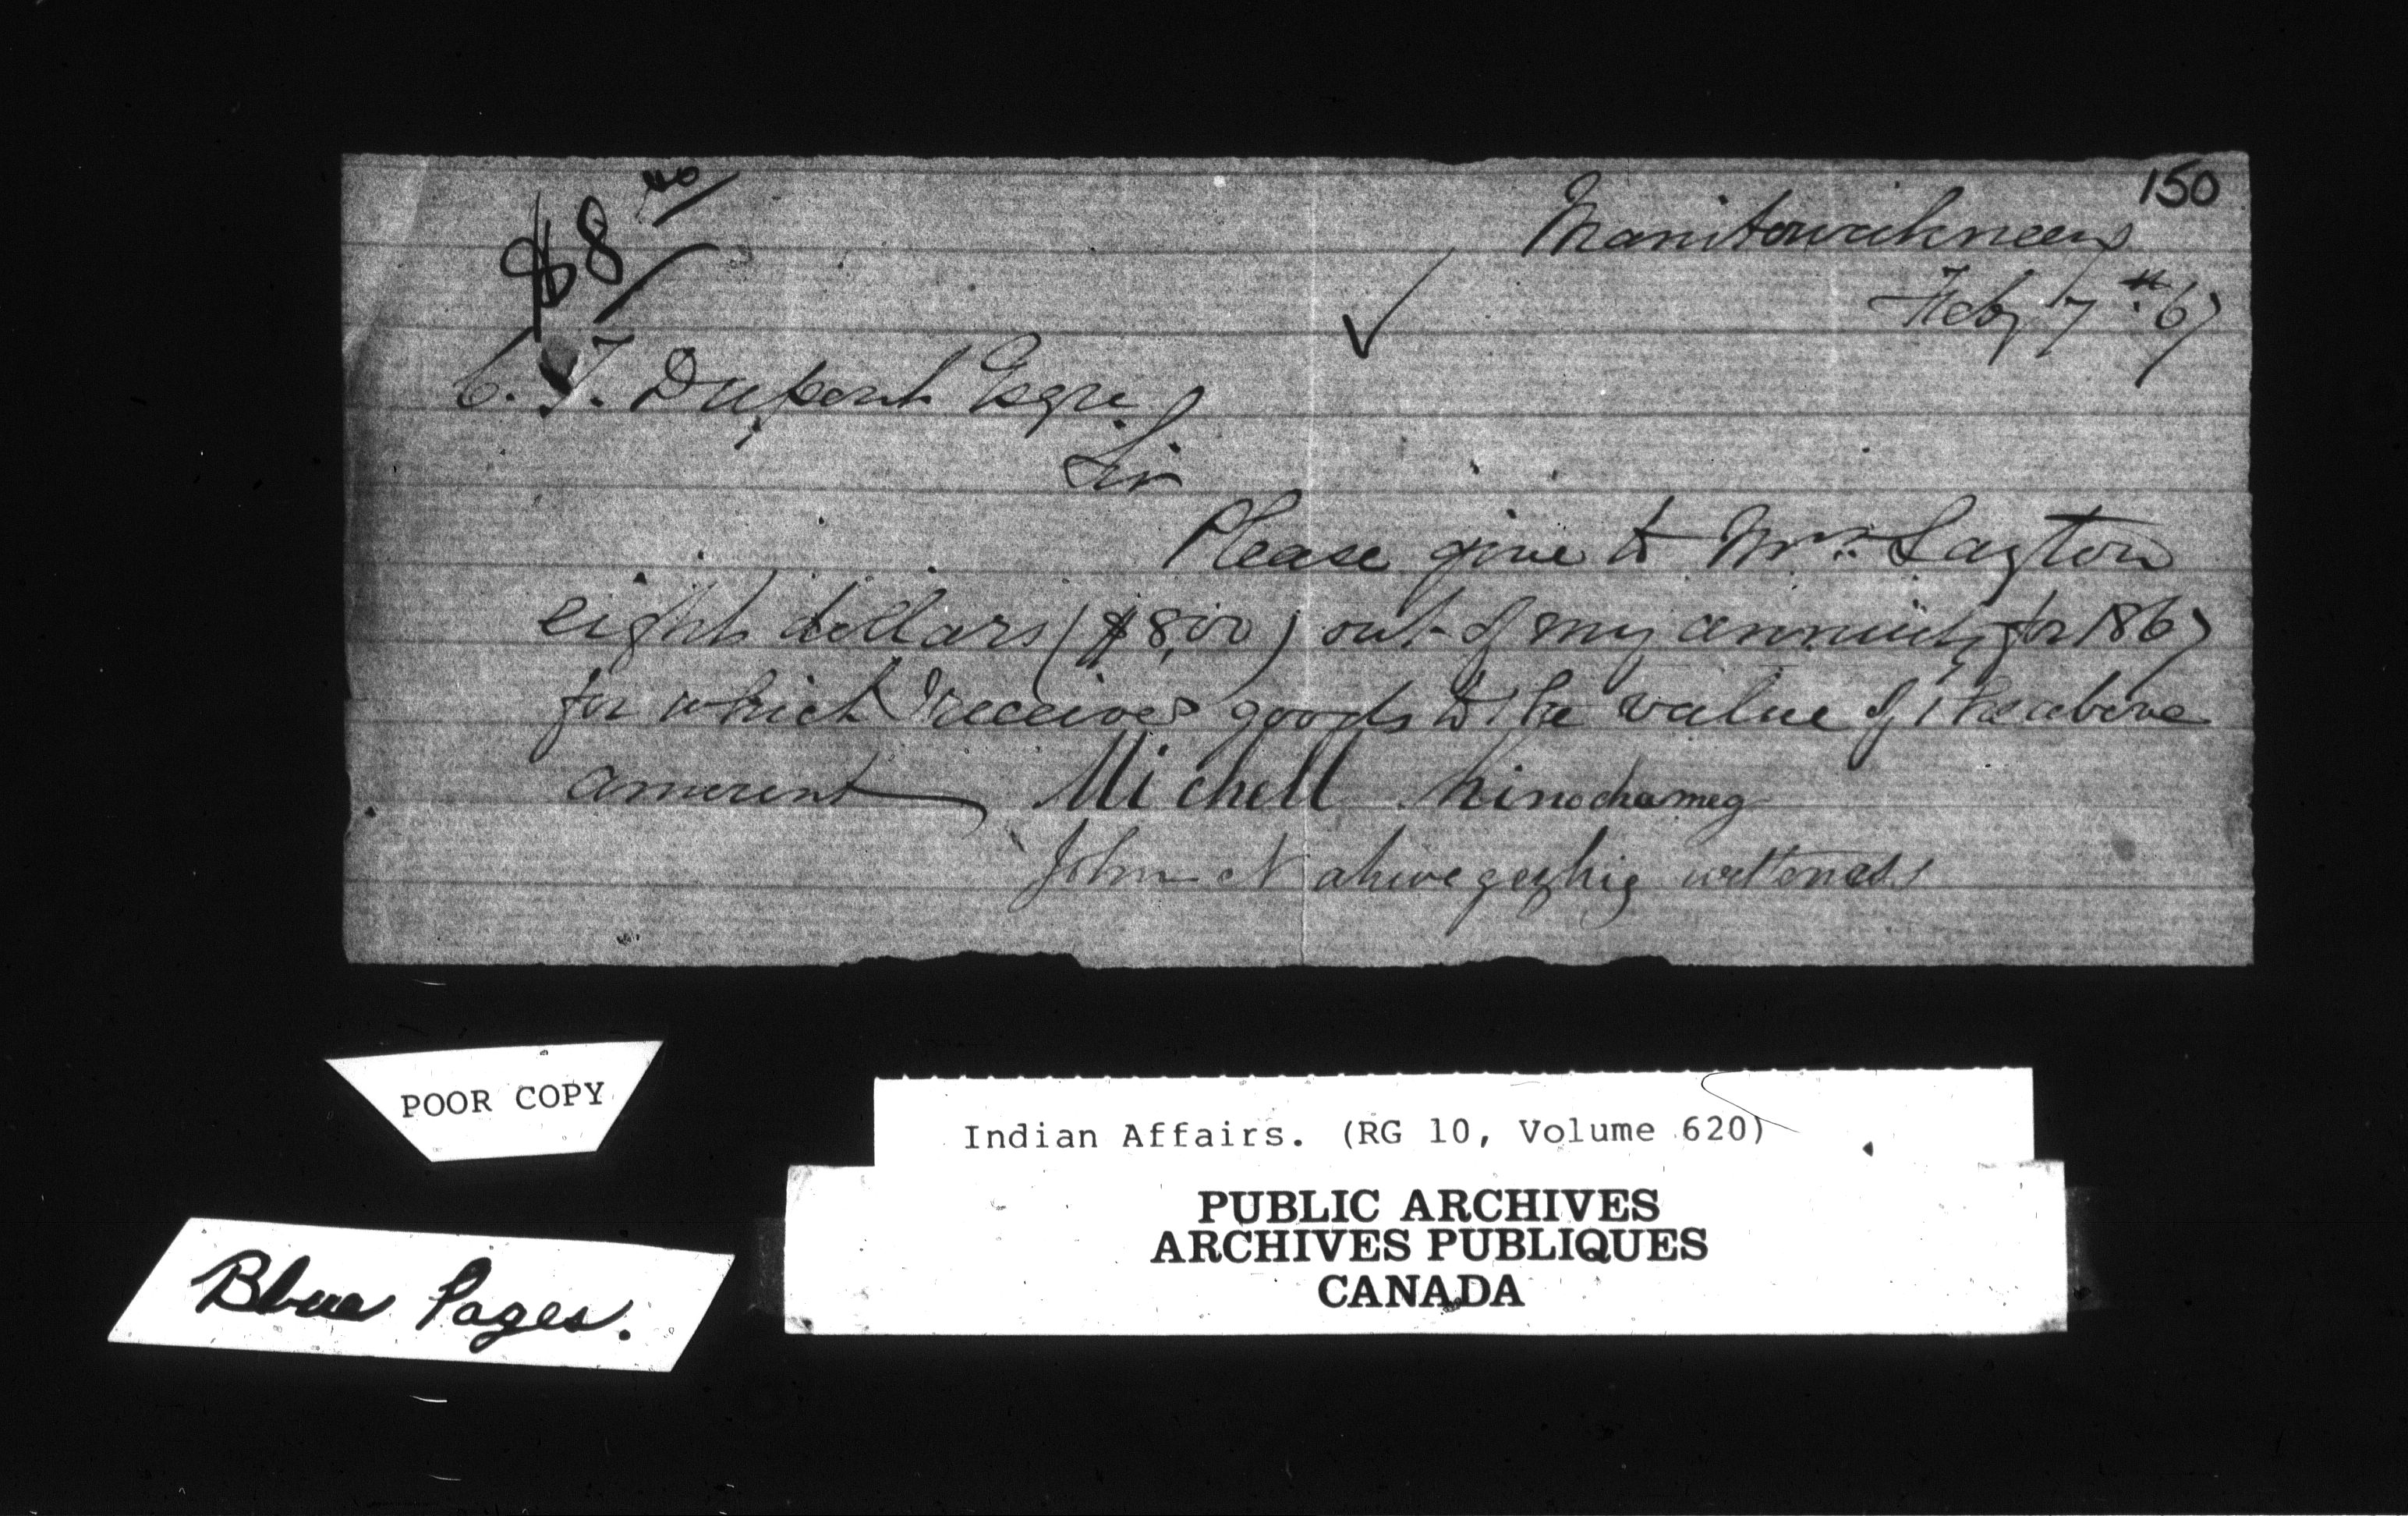 150
$8 00
Manitowahneeng
Feby 7th 67
C. T. Dupont Esqre
Sir
Please give to Mrs Layton
eight dollars ($8,00) out of my annuity for 1867
for which I received goods to the value of the above
amount Michell Kinochameg
John Nahwegezhig wittness
POOR COPY
Indian Affairs. (RG 10, Volume 620)
PUBLIC ARCHIVES
ARCHIVES PUBLIQUES
CANADA
Blue Pages.